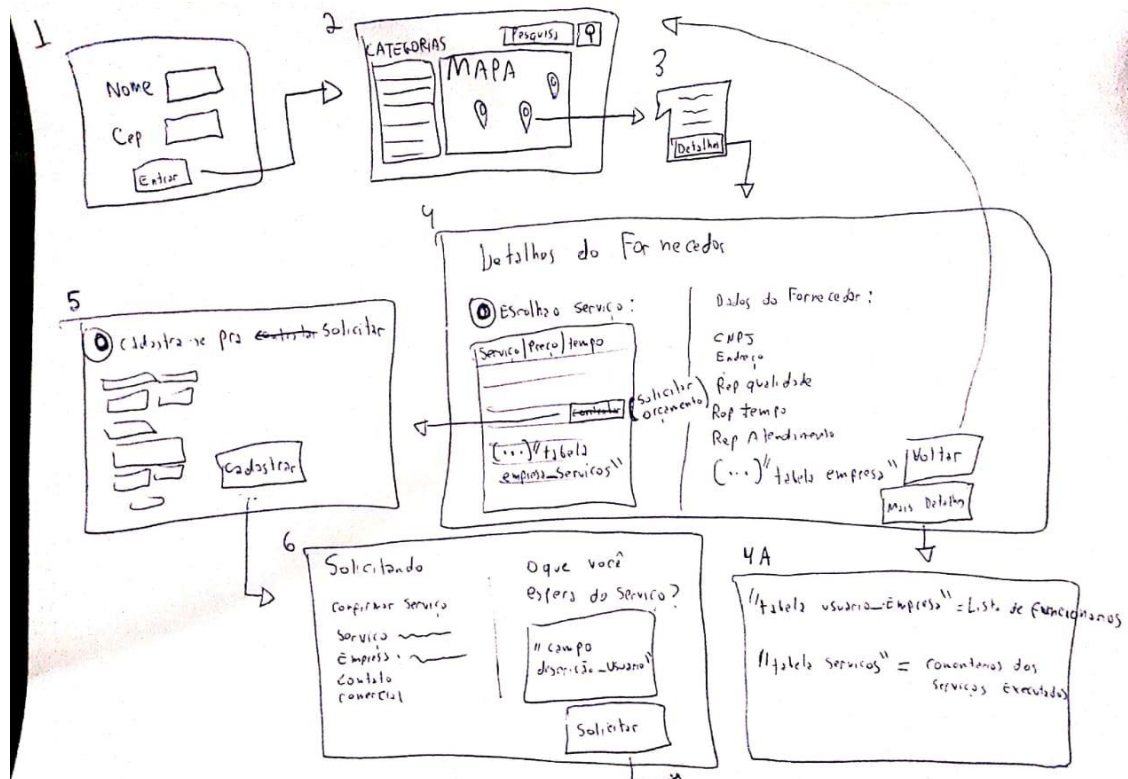 1
Nome
Cep
Entrar
2
CATEGORIAS
Pesquisa
MAPA
3
Detalhes
4
Detalhes do Fornecedor
Escolha o serviço:
Serviço | Preço | tempo
contratar
(Solicitar
orçamento)
(...) "tabela
empresa_serviços"
Dados do Fornecedor:
CNPJ
Endereço
Rep qualidade
Rep tempo
Rep Atendimento
(...) "tabela empresa"
Voltar
Mais Detalhes
5
Cadastra-se pra contratar Solicitar
Cadastrar
6
Solicitando
confirmar serviço
Serviço
Empresa.
Contato
comercial
O que você
espera do serviço?
"campo
descrição_usuario"
Solicitar
4A
"tabela usuario_Empresa" = Lista de Funcionarios
"tabela servicos" = comentarios dos
serviços Executados